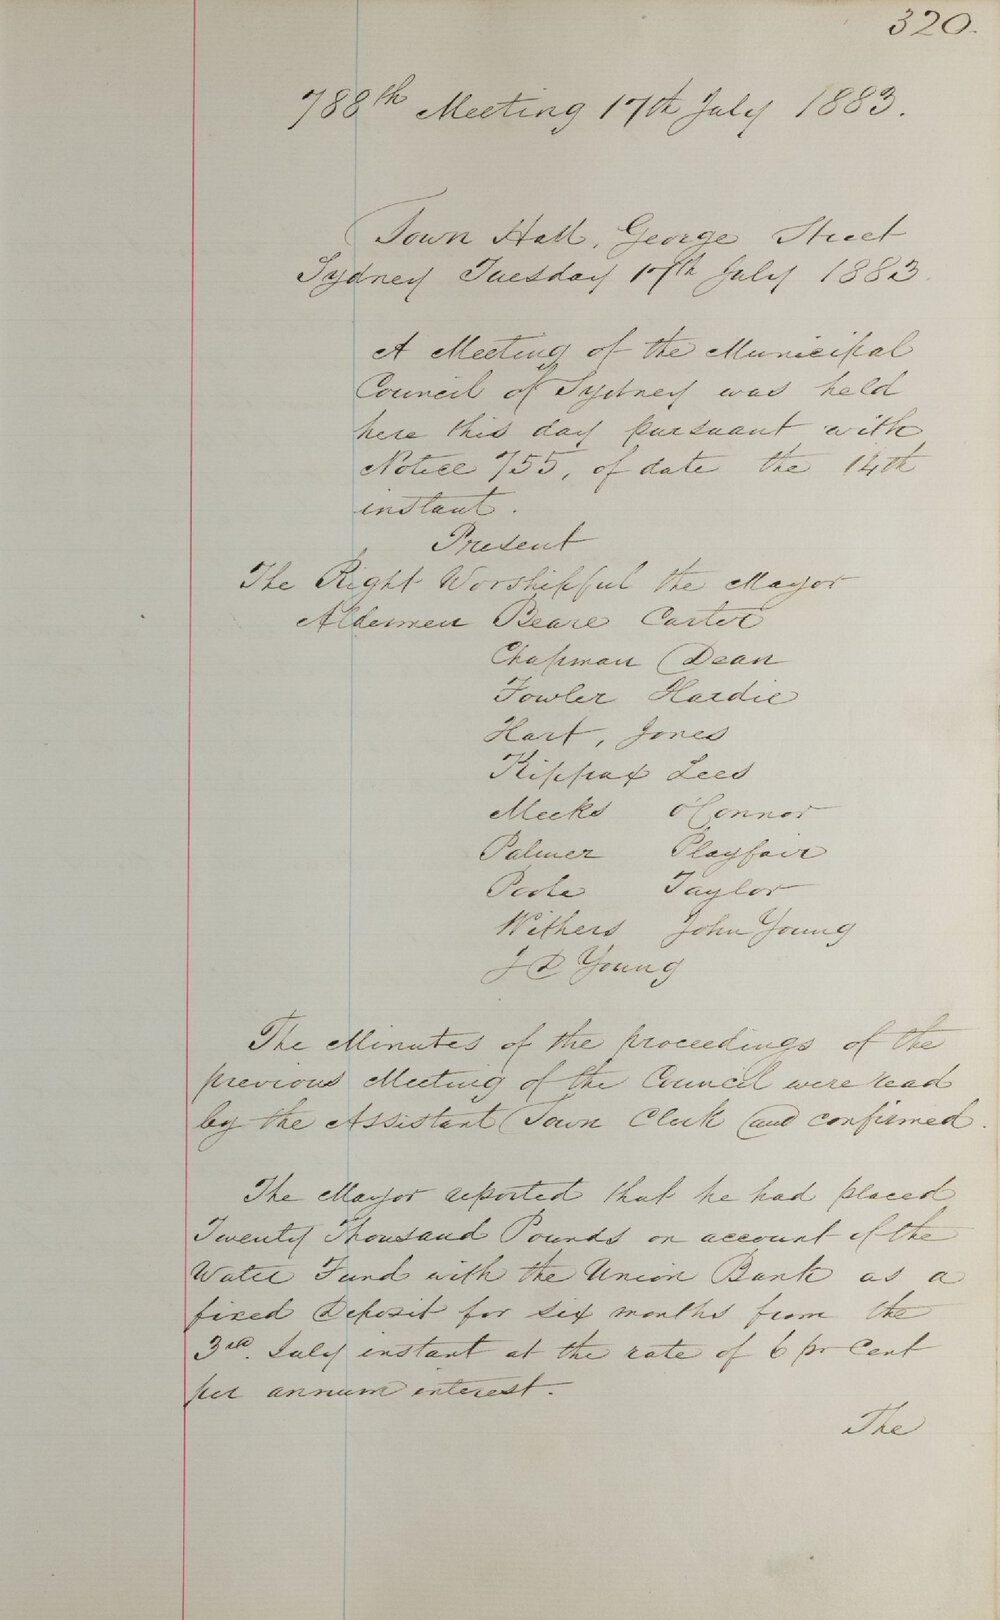 320.
788th Meeting 17th July 1883.
Town Hall, George Street
Sydney Tuesday 17th July 1883.
A Meeting of the Municipal
Council of Sydney was held
here this day pursuant with
Notice 755, of date the 14th
instant.
Present
The Right Worshipful the Mayor
Aldermen Beare Carter
Chapman Dean
Fowler Hardie
Hart, Jones
Kippax Lees
Meeks O'Connor
Palmer Playfair
Poole Taylor
Withers John Young
J D Young
The Minutes of the proceedings of the
previous Meeting of the Council were read
by the Assistant Town Clerk and confirmed.
The Mayor reported that he had placed
Twenty Thousand Pounds on account of the
Water Fund with the Union Bank as a
fixed Deposit for six months from the
3rd. July instant at the rate of 6 pr Cent
per annum interest.
The